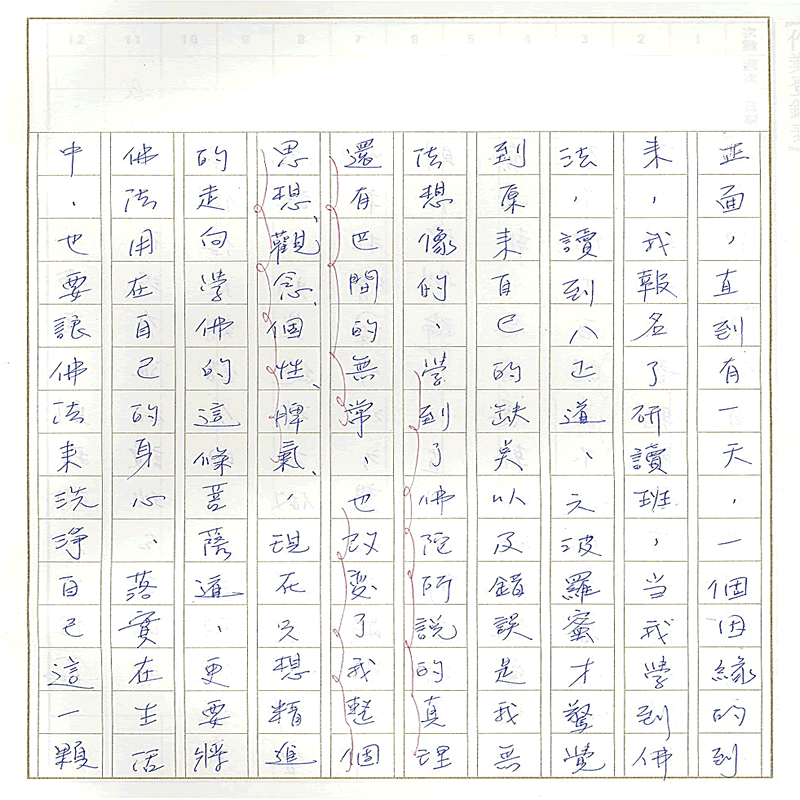 正面，直到有一天，一個因緣的到
來，我報名了研讀班，當我學到佛
法，讀到八正道、六波羅蜜才驚覺
到原來自己的缺失以及錯誤是我無
法想像的、學到了佛陀所說的真理
還有世間的無常、也改變了我整個
思想、觀念、個性、脾氣、，現在只想精進
的走向學佛的這條菩薩道，更要將
佛法用在自己的身心、落實在生活
中，也要讓佛法來洗淨自己這一顆